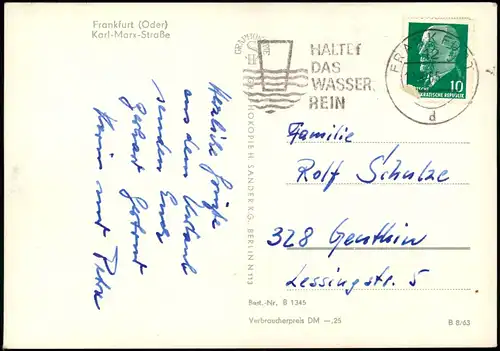 Frankfurt (Oder)
Karl-Marx-Straße
Herzliche Grüße
aus dem Urlaub
senden Euch
Gerhart
Karin und Petra
HALTET
DAS
WASSER
REIN
FRANKFURT
d
10
Familie
Rolf Schulze
328 Genthin
Lessingstr. 5
H. SANDER K.G. BERLIN N 113
Best.-Nr. B 1345
Verbraucherpreis DM —,25
B 8/63